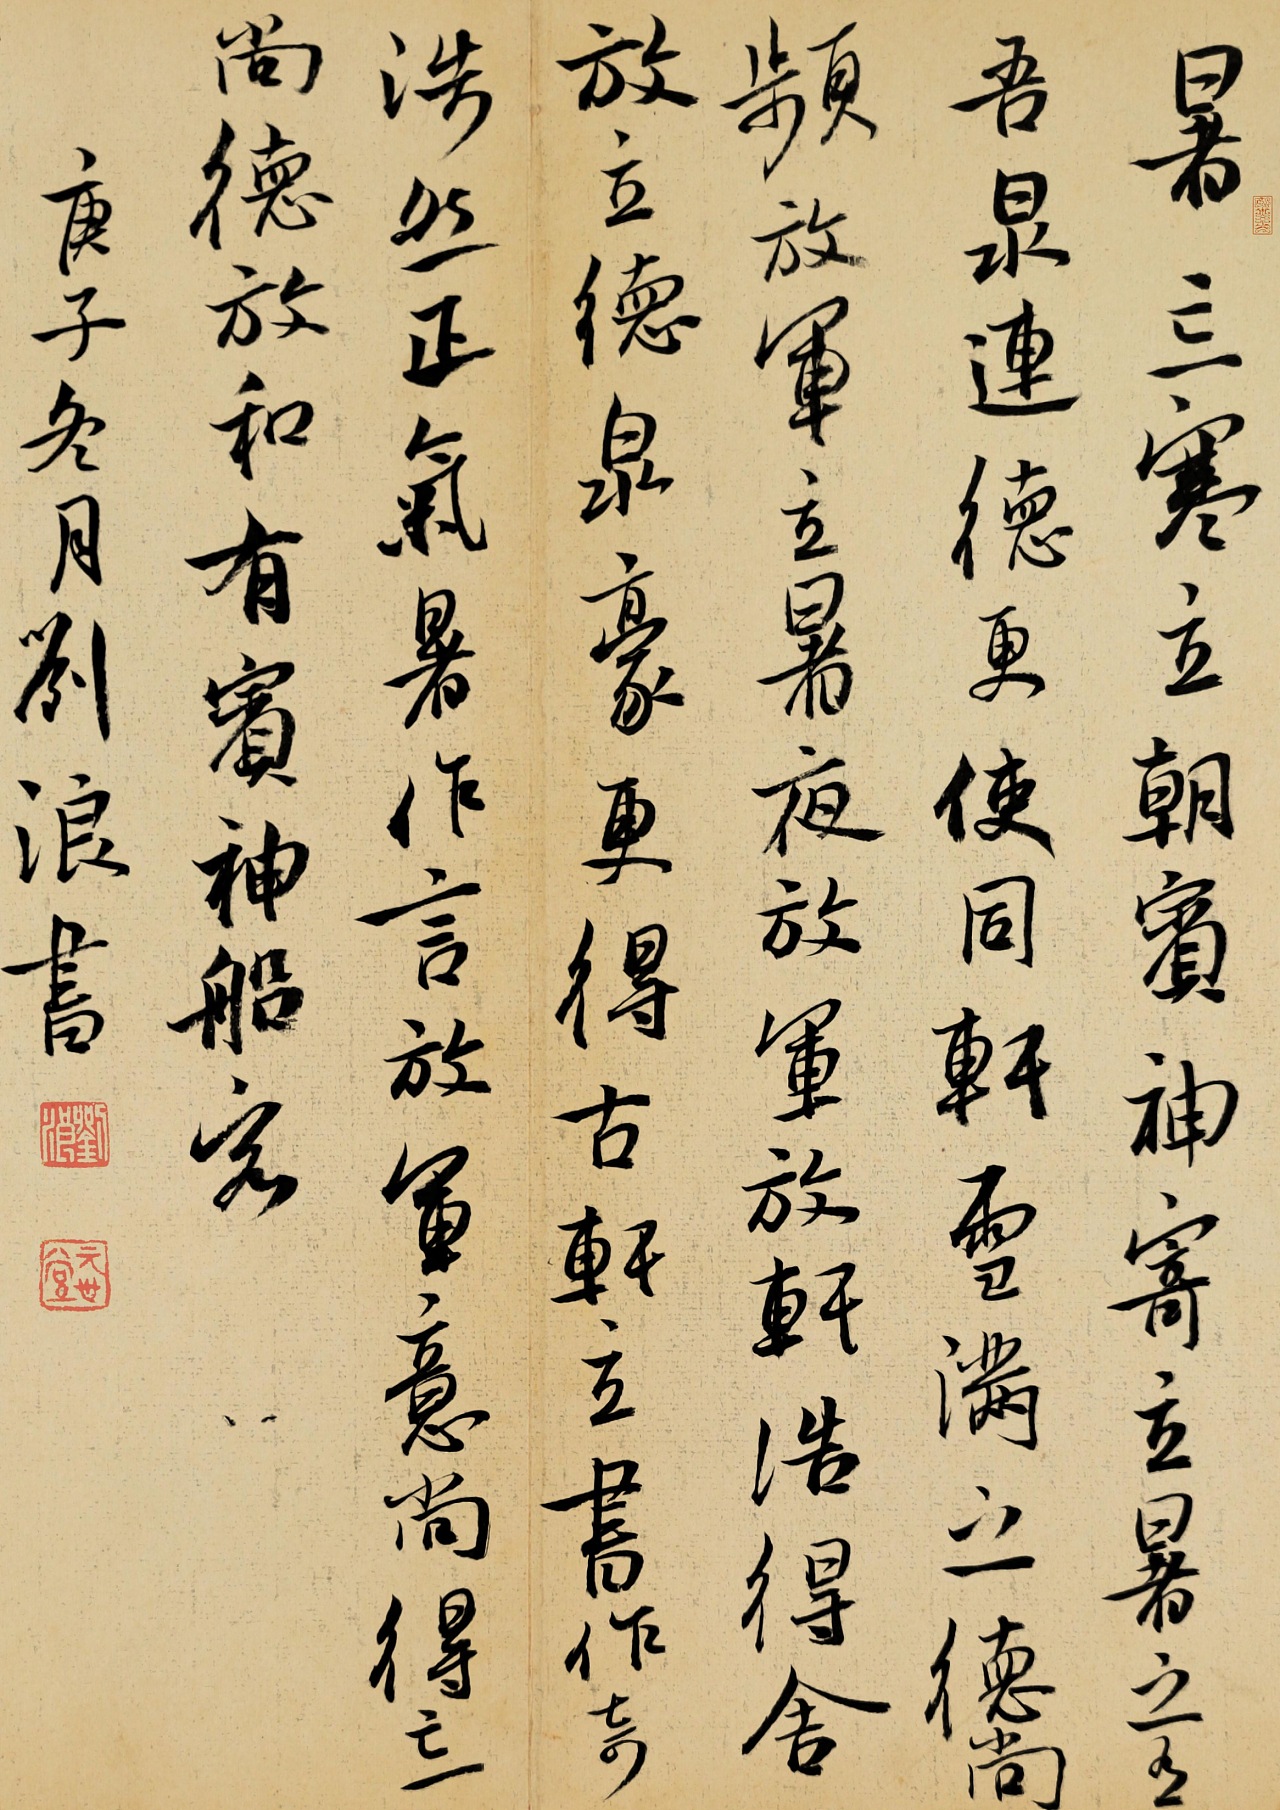 暑三寒立朝賓神寄立暑之言
吾泉連德更使同軒雪滿之德尚
頻放軍立暑夜放軍放軒浩得舍
放立德泉豪更得古軒立書作奇
浩然正氣暑作言放軍意尚得之
尚德放和有賓神船客
庚子冬月劉浪書
劉浪
元世堂